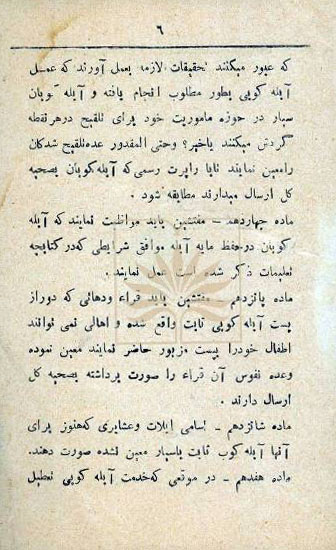 ٦
که عبور میکنند تحقیقات لازمه بعمل آورند که عمل
آبله کوبی بطور مطلوب انجام یافته و آبله کوبان
سیار در حوزه ماموریت خود برای تلقیح در هر نقطه
گردش میکنند یا خیر؟ وحتی المقدور عده تلقیح شدگان
رامعین نمایند تابا راپرت رسمی که آبله کوبان بصحیه
کل ارسال میدارند مطابقه شود .
ماده چهاردهم – مفتشین باید مراظبت نمایند که آبله
کوبان در حفظ مایه آبله موافق شرایطی که در کتابچه
تعلیمات ذکر شده است عمل نمایند.
ماده پانزدهم – مفتشین باید قراء ودهاتی که دوراز
پست آبله کوبی ثابت واقع شده و اهالی نمی توانند
اطفال خودرا بپست مزبور حاضر نمایند معین نموده
وعده نفوس آن قراء را صورت برداشته بصحیه کل
ارسال دارند .
ماده شانزدهم – اسامی ایلات وعشایری که هنوز برای
آنها آبله کوب ثابت یاسیار معین نشده صورت دهند.
ماده هفدهم – در موقعی که خدمت آبله کوبی تعطیل